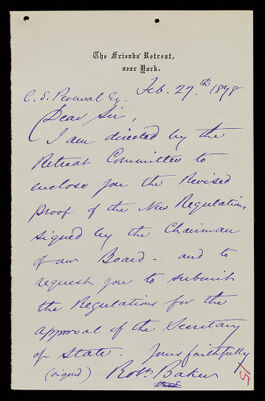 The Friends' Retreat,
near York.
Feb. 27th 1878
C. S. Perceval Esq.
Dear Sir,
I am directed by the
Retreat Committee to
enclose you the Revised
Proof of the New Regulations,
signed by the Chairman
of our Board - and to
request you to submit
the Regulations for the
approval of the Secretary
of State. Yours faithfully
(signed) Robt. Baker